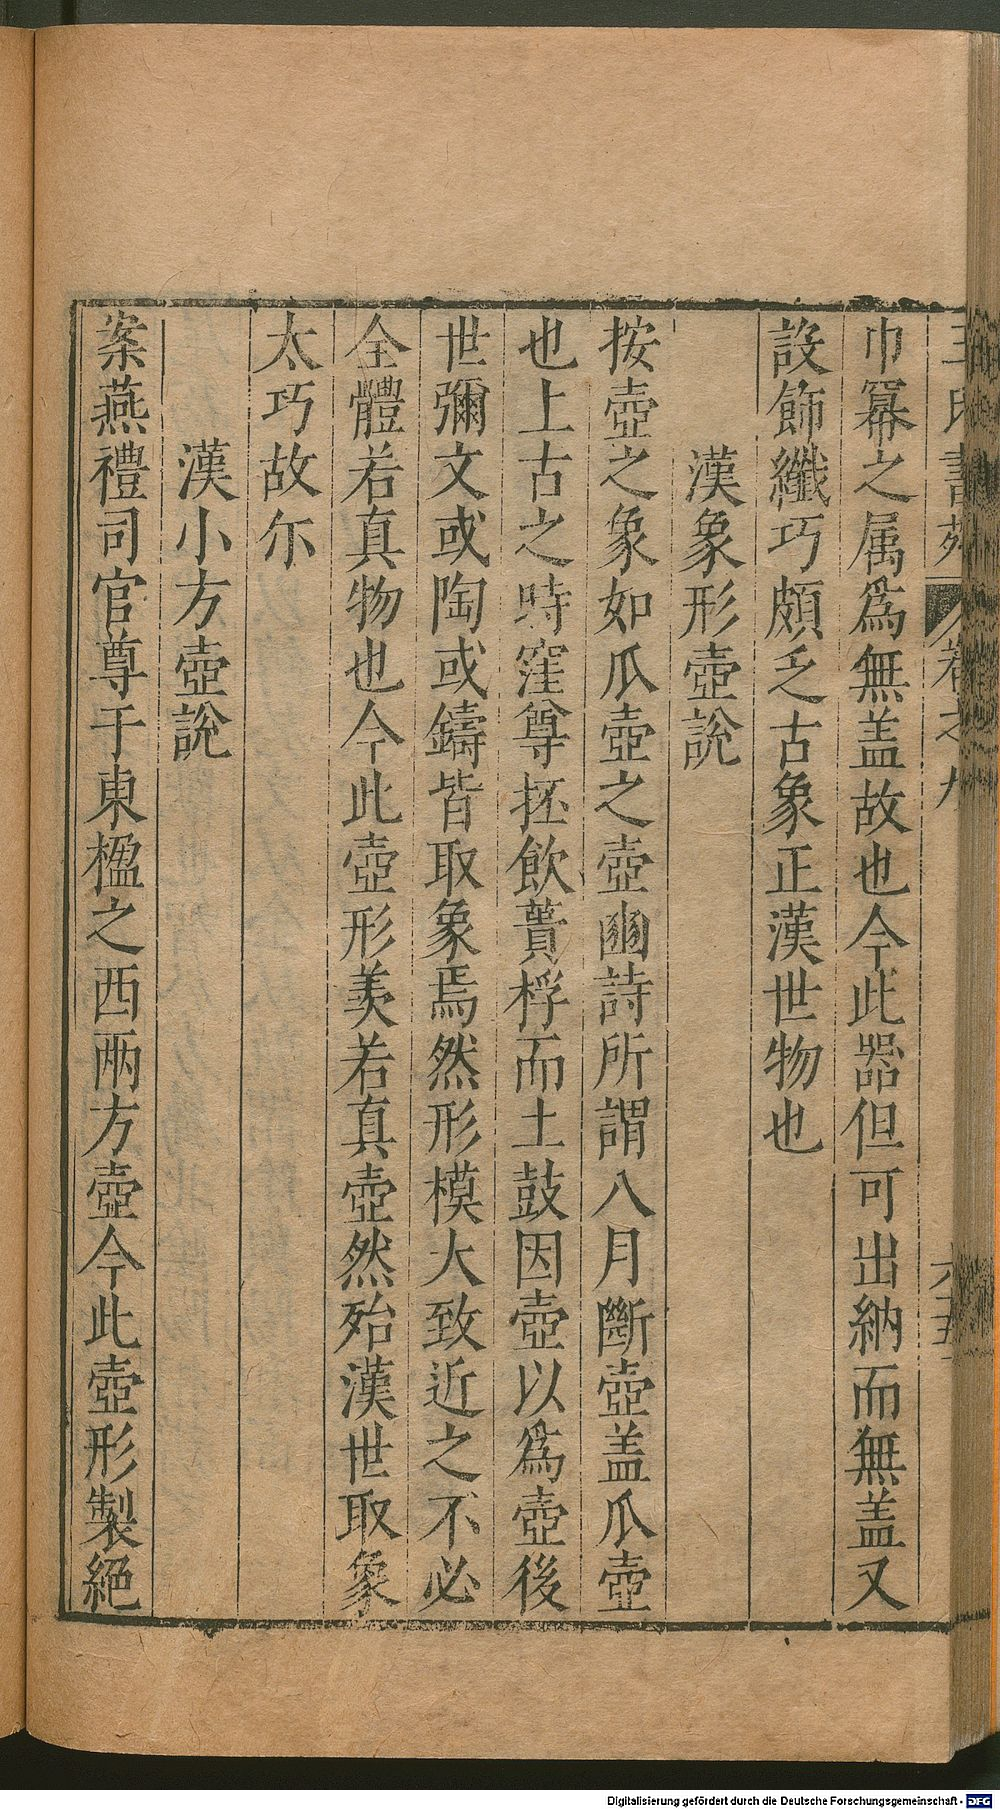 王氏書苑 卷之九 六十五
巾冪之属爲無盖故也今此器但可出納而無盖又
設飾纖巧頗乏古象正漢世物也
漢象形壺說
按壺之象如瓜壺之壺豳詩所謂八月斷壺盖瓜壺
也上古之時窪尊抔飲蕢桴而土鼓因壺以爲壺後
世彌文或陶或鑄皆取象焉然形模大致近之不必
全體若真物也今此壺形羙若真壺然殆漢世取象
太巧故尓
漢小方壺說
案燕禮司官尊于東楹之西兩方壺今此壺形製絕
Digitalisierung gefördert durch die Deutsche Forschungsgemeinschaft - DFG